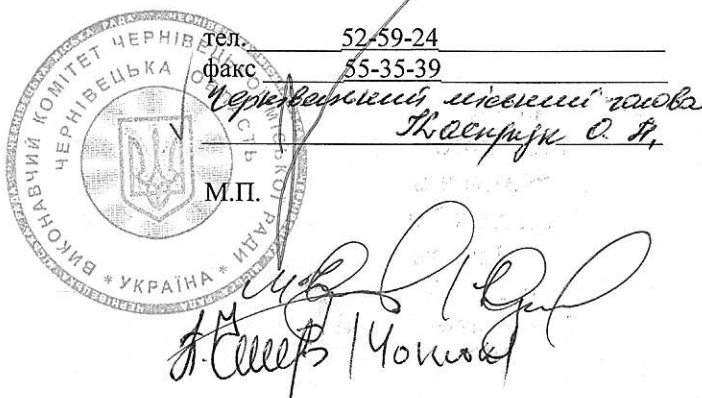 тел. 52-59-24
факс 55-35-39
Чернівецький міський голова
Каспрук О. П.
М.П.
ВИКОНАВЧИЙ КОМІТЕТ ЧЕРНІВЕЦЬКОЇ МІСЬКОЇ РАДИ
ЧЕРНІВЕЦЬКА ОБЛАСТЬ
* УКРАЇНА *